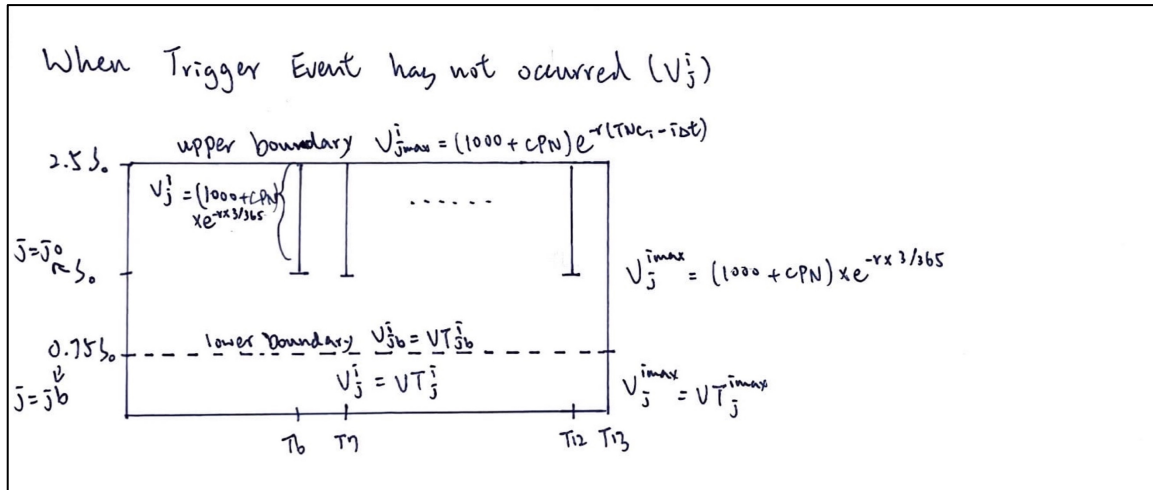 When Trigger Event has not occurred (V_j^i)
upper boundary V_{jmax}^i = (1000 + CPN) e^{-r(TNCi - iΔt)}
2.5S₀
V_j^i = (1000 + CPN)
x e^{-r x 3/365}
......
j = j₀
S₀
V_j^{imax} = (1000 + CPN) x e^{-r x 3/365}
lower boundary V_{jb}^i = VT_{jb}^i
0.75S₀
V_j^i = VT_j^i
V_j^{imax} = VT_j^{imax}
j = jb
T6 T7 T12 T13